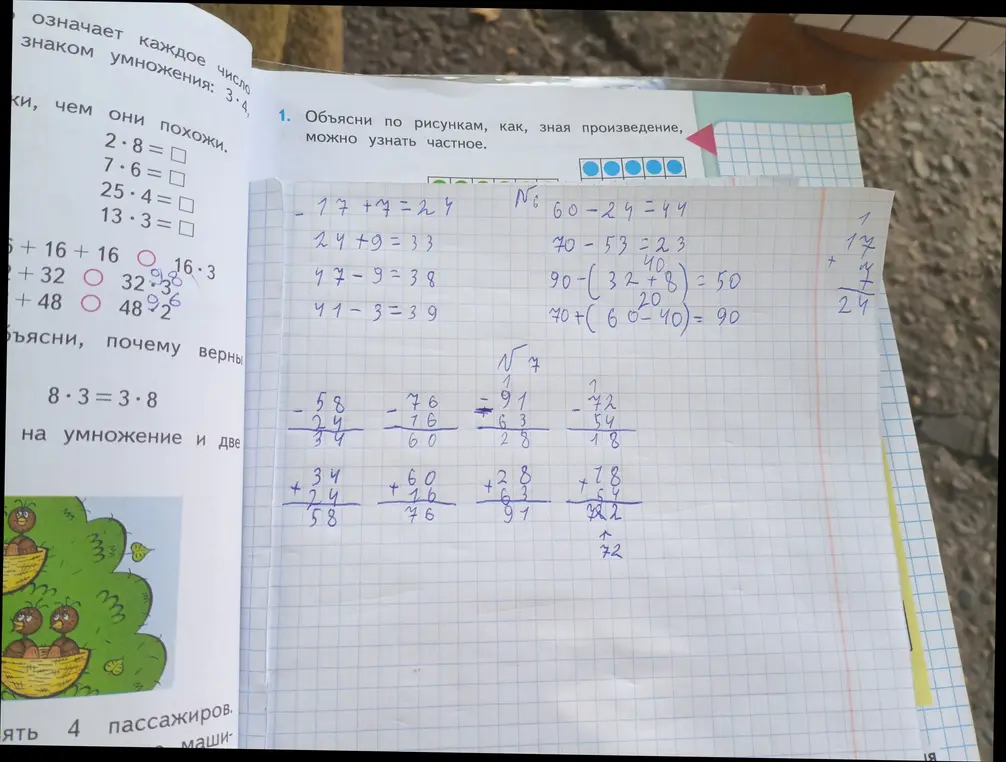 означает каждое число
знаком умножения: 3·4,
ки, чем они похожи.
2 · 8 = □
7 · 6 = □
25 · 4 = □
13 · 3 = □
6 + 16 + 16 ○ 16 · 3
2 + 32 ○ 32 · 3 98
+ 48 ○ 48 · 2 96
бъясни, почему верны
8 · 3 = 3 · 8
на умножение и две
ять 4 пассажиров.
маши-
1. Объясни по рисункам, как, зная произведение,
можно узнать частное.
N6
- 17 + 7 = 24
24 + 9 = 33
47 - 9 = 38
41 - 3 = 39
60 - 24 = 44
70 - 53 = 23
40
90 - ( 32 + 8 ) = 50
20
70 + ( 60 - 40 ) = 90
1
17
+ 7
24
N 7
- 58
24
34
- 76
16
60
1
- 91
63
28
1
- 72
54
18
+ 34
24
58
+ 60
16
76
+ 28
63
91
+ 18
54
↑
72